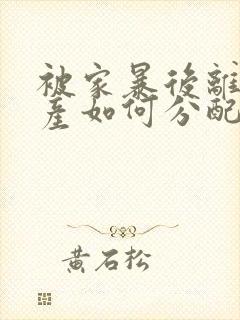 被家暴後離
產如何分配
黃石松